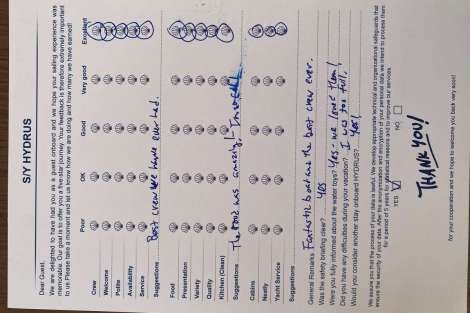 S/Y HYDRUS
Dear Guest,
We are delighted to have had you as a guest onboard and we hope your sailing experience was
memorable. Our goal is to offer you a five-star journey. Your feedback is therefore extremely important
to us. Please take a moment and let us know how we are doing and how many we have earned!
Poor OK Good Very good Excellent
Crew
Welcome
Polite
Availability
Service
Suggestions Best crew we have ever had.
Food
Presentation
Variety
Quality
Kitchen (Clean)
Suggestions The food was amazing!
Cabins
Neatly
Yacht Service
Suggestions
General Remarks Fantastic boat and the best crew ever.
Was the safety briefing clear? yes
Were you fully informed about the water toys? Yes - we love them!
Did you have any difficulties during your vacation? I was too full.
Would you consider another stay onboard HYDRUS? Yes!
We assure you that the process of your data is lawful. We develop appropriate technical and organisational safeguards that
ensure the security of your data. After the anonymisation and encryption of your personal data we intend to process them
for a period of 5 years for statistical reasons and to improve our services.
YES NO
THANK YOU!
We hope to welcome you back very soon!